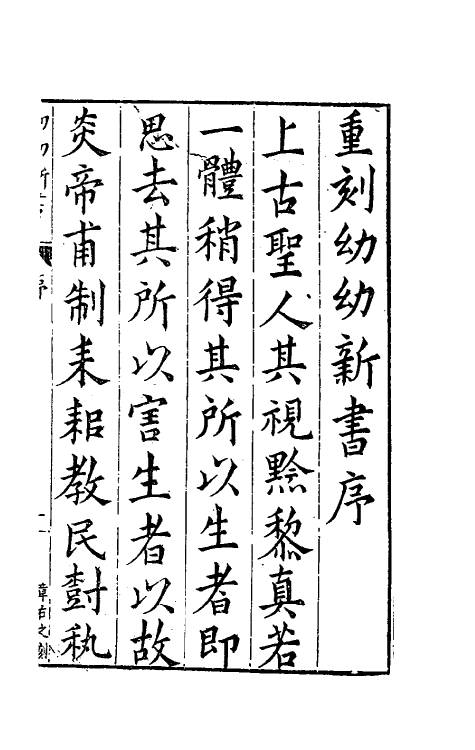 重刻幼幼新書序
上古聖人其視黔黎真若
一體稍得其所以生者即
思去其所以害生者以故
炎帝甫制耒耜教民𣗳秇
序
章右之刻